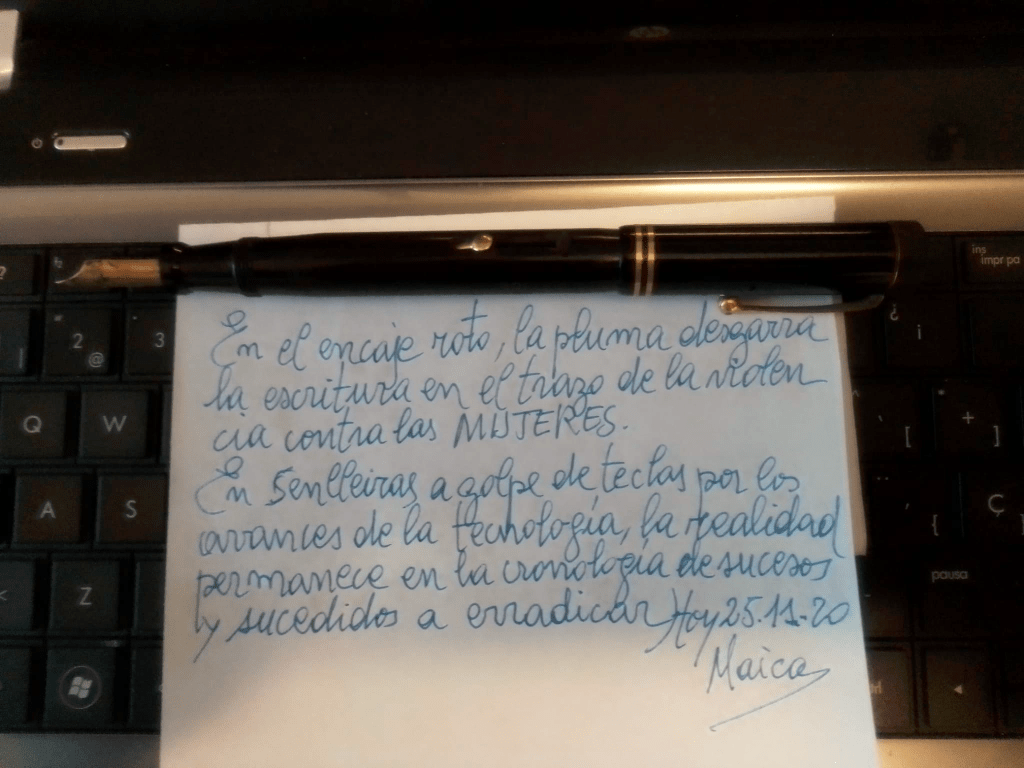 ins
impr pa
?
2
@
3
¿
¡
Q
W
[
+
]
A
S
{
Ç
}
<
Z
pausa
En el encaje roto, la pluma desgarra
la escritura en el trazo de la violen
cia contra las MUJERES.
En Senlleiras a golpe de teclas por los
avances de la tecnología, la realidad
permanece en la cronología de sucesos
y sucedidos a erradicar Hoy 25-11-20
Maica